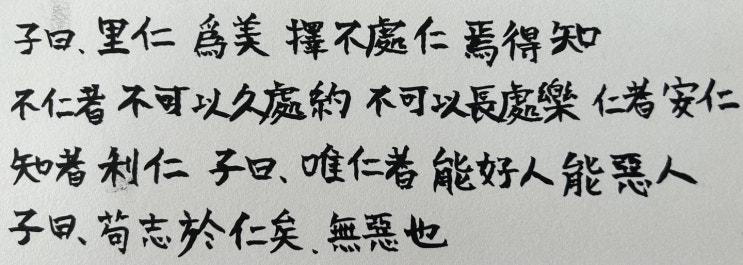 子曰、里仁爲美 擇不處仁 焉得知
不仁者 不可以久處約 不可以長處樂 仁者安仁
知者利仁 子曰、唯仁者 能好人能惡人
子曰、苟志於仁矣、無惡也